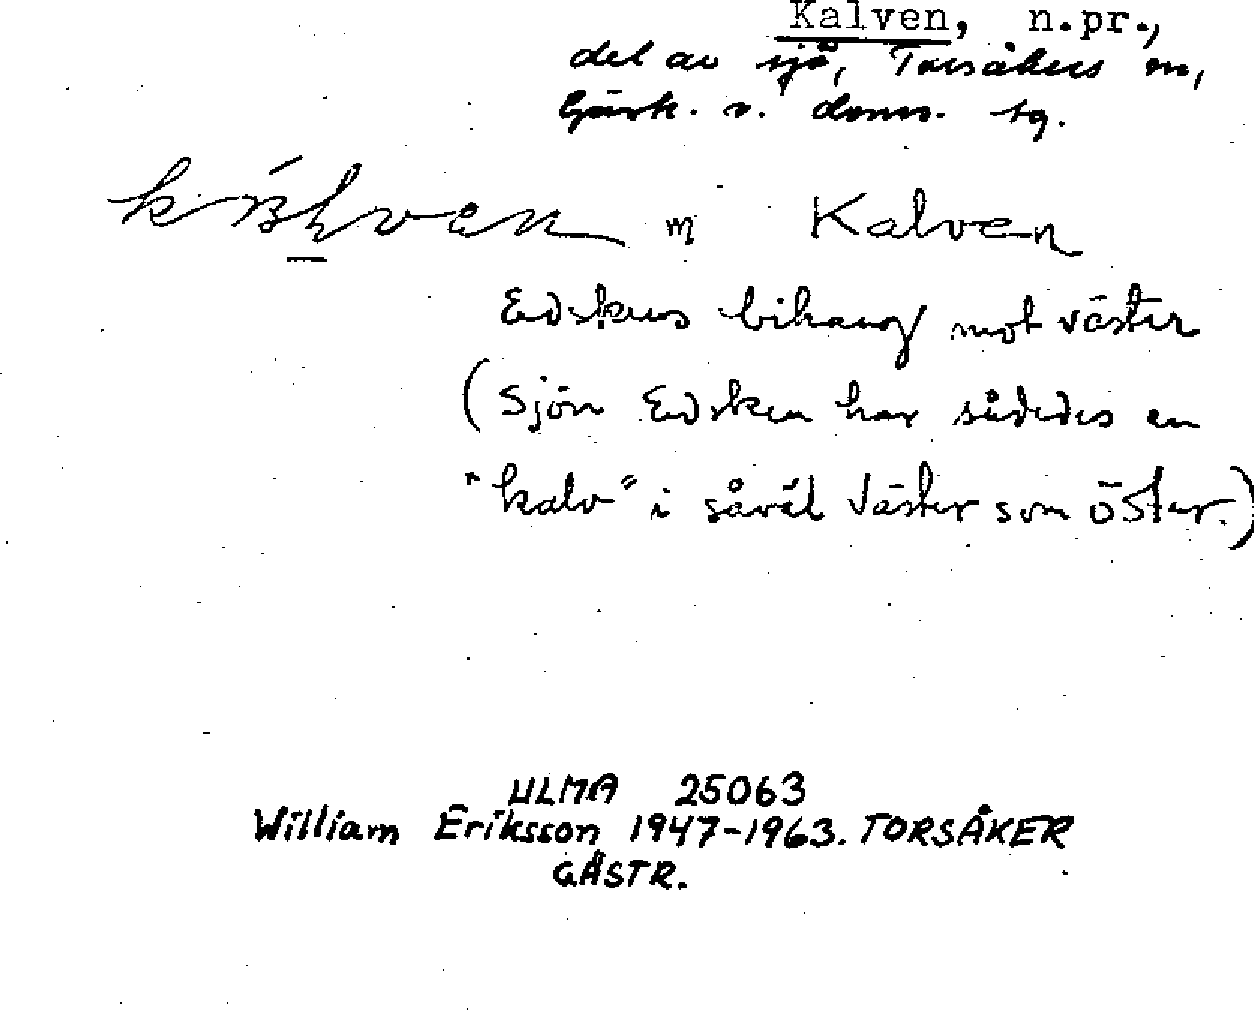 Kalven, n.pr.,
del av sjö, Torsåkers sn,
Gästr. v. doms. tg.
m Kalven
Edskens bihang mot väster
(Sjön Edsken har således en
"kalv" i såväl väster som öster.)
ULMA 25063
William Eriksson 1947-1963. TORSÅKER
GÄSTR.